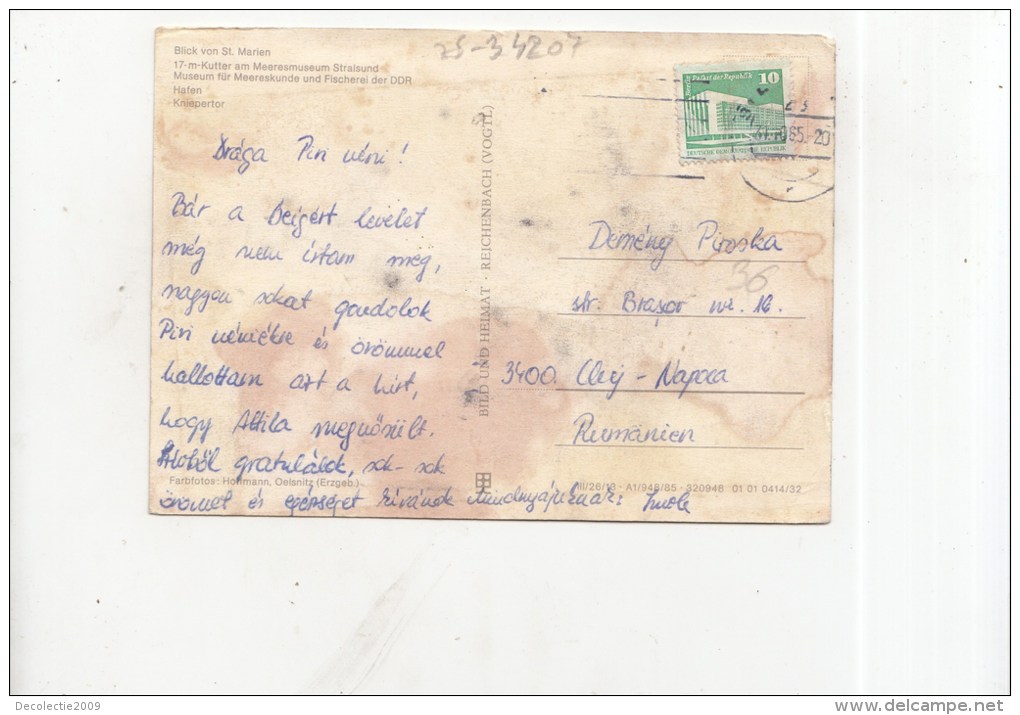 Blick von St. Marien
17-m-Kutter am Meeresmuseum Stralsund
Museum für Meereskunde und Fischerei der DDR
Hafen
Kniepertor
25-34207
Drága Piri néni!
Bár a beigért levelet
még nem írtam meg,
nagyon sokat gondolok
Piri néniékre és örömmel
hallottam azt a hírt,
hogy Attila megnősült.
Szívből gratulálok, sok-sok
Farbfotos: Hoffmann, Oelsnitz (Erzgeb.)
örömet és egészséget kívánok mindnyájuknak:
BILD UND HEIMAT · REICHENBACH (VOGTL)
Palast der Republik 10
DEUTSCHE DEMOKRATISCHE REPUBLIK
Demény Piroska
36
str. Brașov nr. 16.
3400. Cluj-Napoca
Rumänien
III/26/13 · A1/948/85 · 320946 01 01 0414/32
Decolectie2009
www.delcampe.net